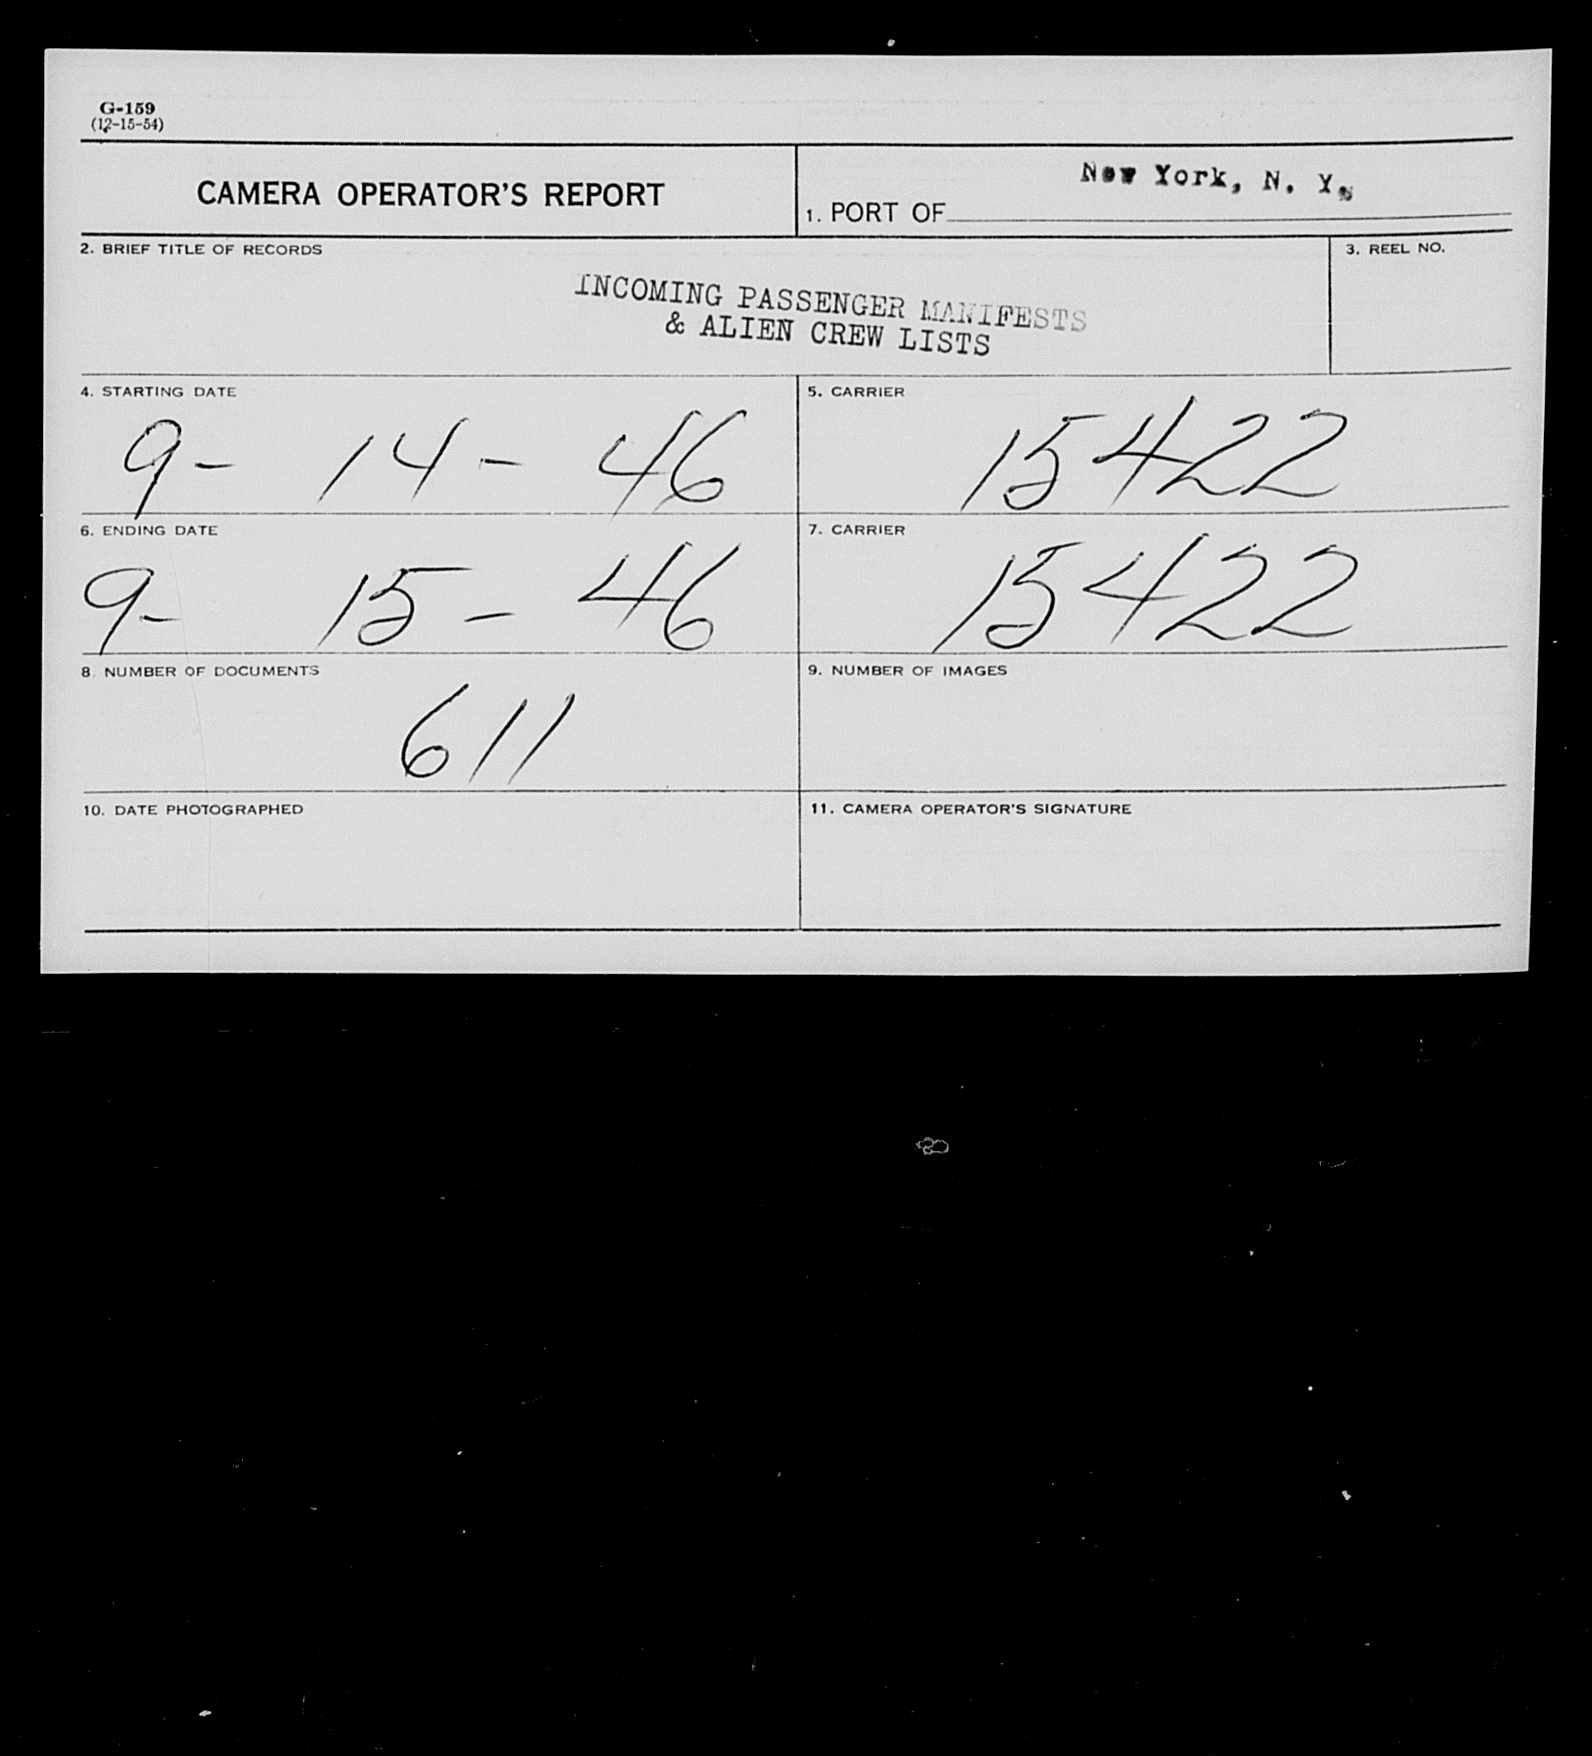 G-159
(12-15-54)
CAMERA OPERATOR'S REPORT
1. PORT OF New York, N. Y.
2. BRIEF TITLE OF RECORDS
3. REEL NO.
INCOMING PASSENGER MANIFESTS
& ALIEN CREW LISTS
4. STARTING DATE
9- 14- 46
5. CARRIER
15422
6. ENDING DATE
9- 15- 46
7. CARRIER
15422
8. NUMBER OF DOCUMENTS
611
9. NUMBER OF IMAGES
10. DATE PHOTOGRAPHED
11. CAMERA OPERATOR'S SIGNATURE